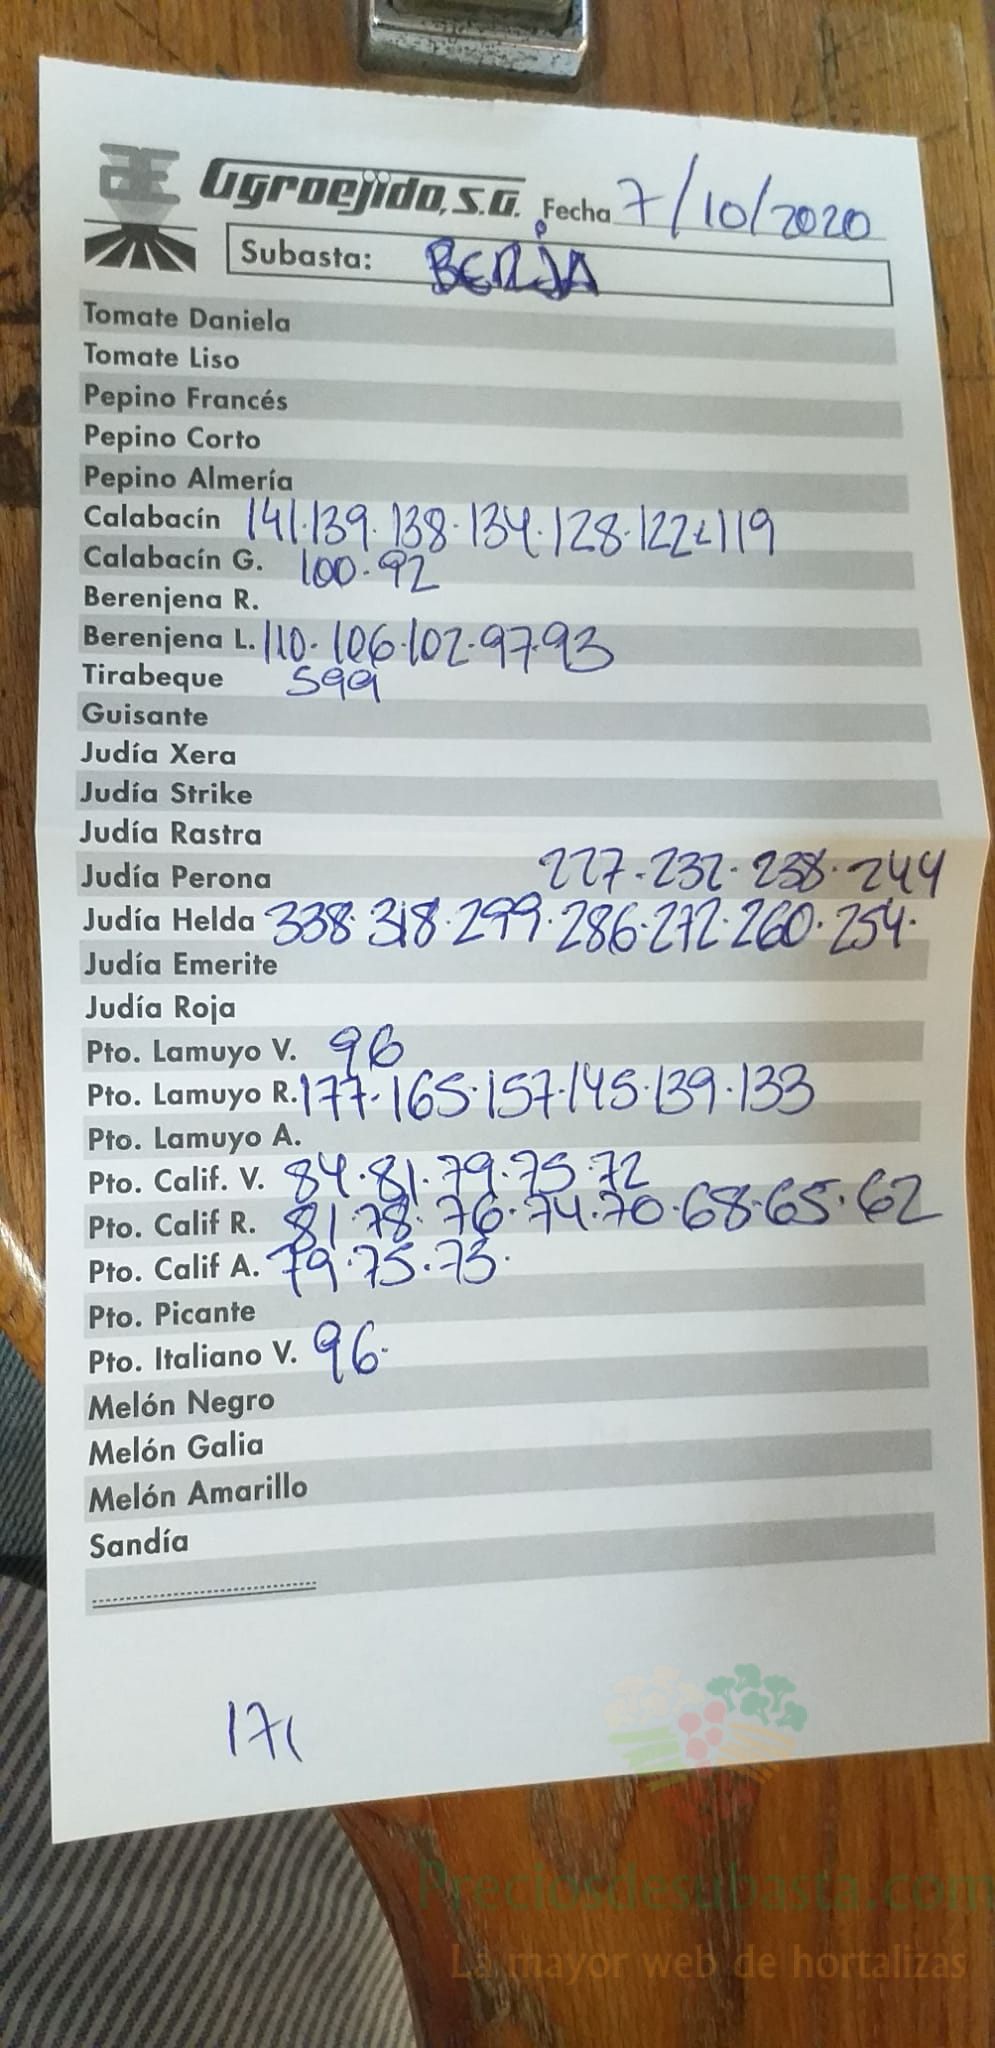 Agroejido, S.A. Fecha 7/10/2020
Subasta: BERJA
Tomate Daniela
Tomate Liso
Pepino Francés
Pepino Corto
Pepino Almería
Calabacín 141.139.138.134.128.122.119
Calabacín G. 100.92
Berenjena R.
Berenjena L. 110.106.102.97.93
Tirabeque 599
Guisante
Judía Xera
Judía Strike
Judía Rastra
Judía Perona 227.232.238.244
Judía Helda 338.318.299.286.272.260.254.
Judía Emerite
Judía Roja
Pto. Lamuyo V. 96
Pto. Lamuyo R. 177.165.157.145.139.133
Pto. Lamuyo A.
Pto. Calif. V. 84.81.79.75.72
Pto. Calif R. 81.78.76.74.70.68.65.62
Pto. Calif A. 79.75.73.
Pto. Picante
Pto. Italiano V. 96.
Melón Negro
Melón Galia
Melón Amarillo
Sandía
Preciosdesubasta.com
La mayor web de hortalizas